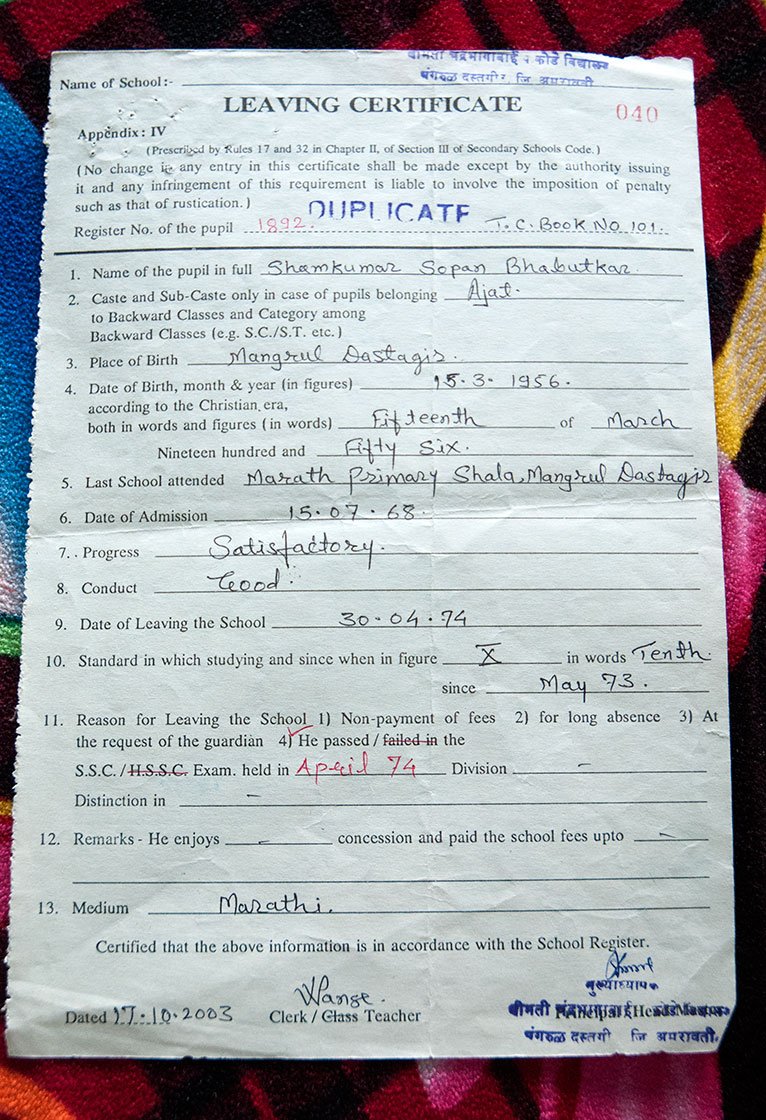 श्रीमती चंद्रभागाबाई र कोंडे विद्यालय
Name of School:-
मंगरुळ दस्तगीर, जि अमरावती
LEAVING CERTIFICATE
040
Appendix: IV
(Prescribed by Rules 17 and 32 in Chapter II, of Section III of Secondary Schools Code.)
(No change in any entry in this certificate shall be made except by the authority issuing
it and any infringement of this requirement is liable to involve the imposition of penalty
such as that of rustication.) DUPLICATE
Register No. of the pupil 1892. T.C. Book No 101.
1. Name of the pupil in full Shamkumar Sopan Bhabutkar.
2. Caste and Sub-Caste only in case of pupils belonging Ajat.
to Backward Classes and Category among
Backward Classes (e.g. S.C./S.T. etc.)
3. Place of Birth Mangrul Dastagir.
4. Date of Birth, month & year (in figures) 15.3.1956.
according to the Christian era,
both in words and figures (in words) Fifteenth of March
Nineteen hundred and Fifty Six.
5. Last School attended Marath Primary Shala, Mangrul Dastagir
6. Date of Admission 15.07.68.
7. Progress Satisfactory.
8. Conduct Good.
9. Date of Leaving the School 30.04.74
10. Standard in which studying and since when in figure X in words Tenth.
since May 73.
11. Reason for Leaving the School 1) Non-payment of fees 2) for long absence 3) At
the request of the guardian 4) He passed / failed in the
S.S.C. / H.S.S.C. Exam. held in April 74 Division -
Distinction in -
12. Remarks - He enjoys - concession and paid the school fees upto -
13. Medium Marathi.
Certified that the above information is in accordance with the School Register.
मुख्याध्यापक
Dated 17.10.2003 Clerk / Class Teacher Principal / Head Master
श्रीमती चंद्रभागाबाई र कोंडे विद्यालय
मंगरुळ दस्तगी जि अमरावती.